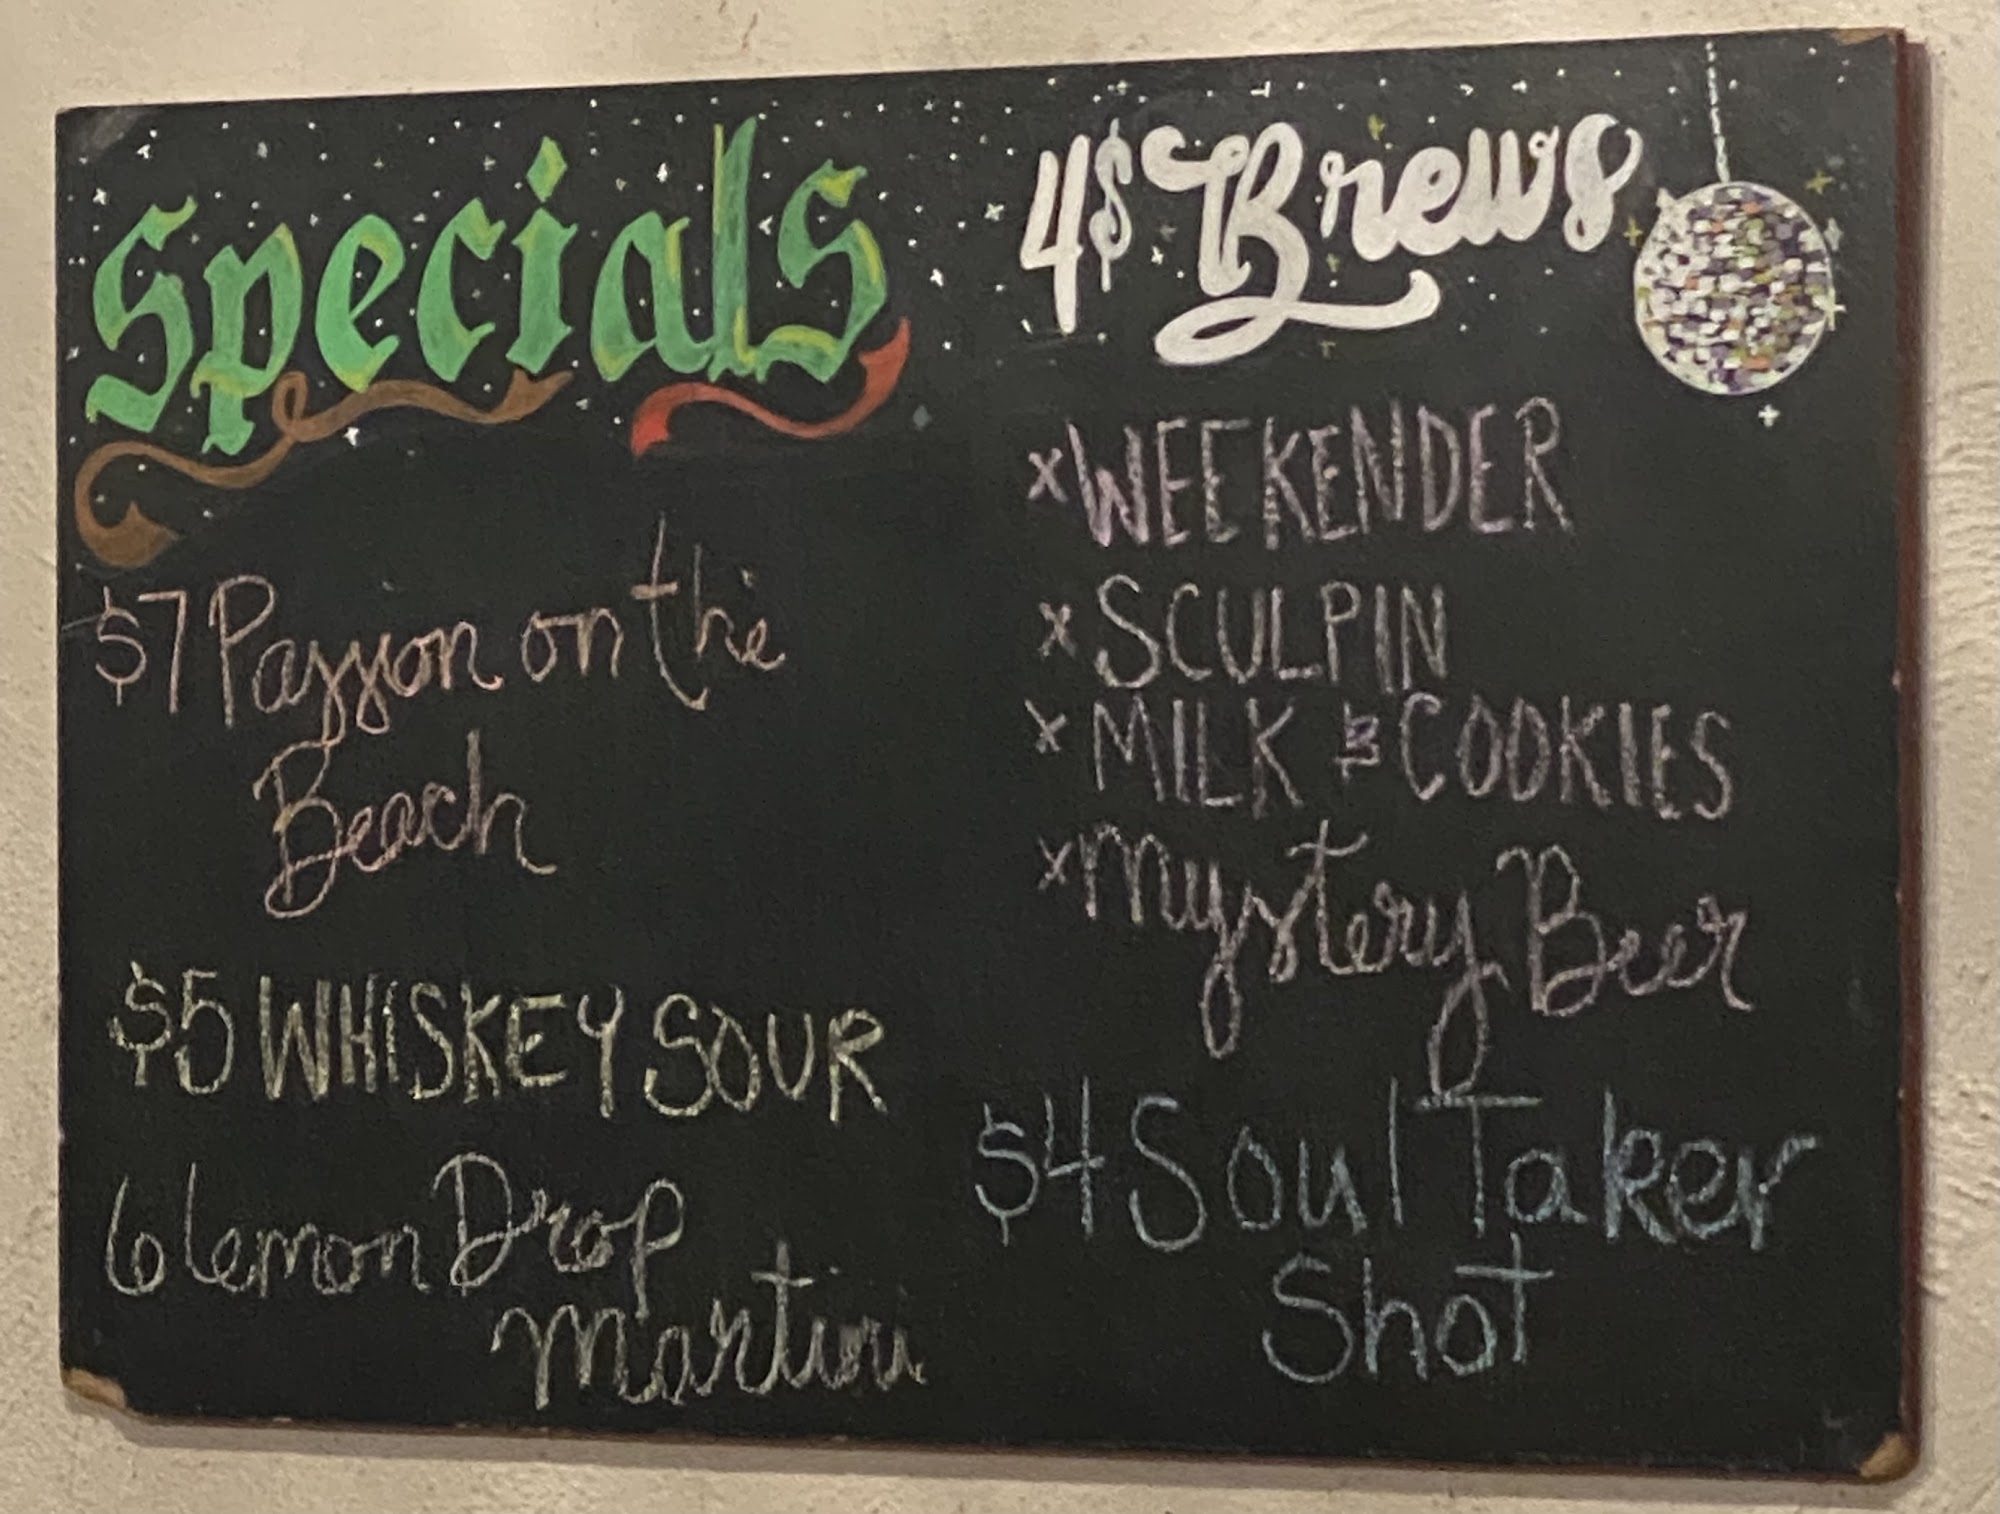 Specials
$7 Passion on the
Beach
$5 WHISKEY SOUR
6 Lemon Drop
Martini
4$ Brews
x WEEKENDER
x SCULPIN
x MILK & COOKIES
x Mystery Beer
$4 Soul Taker
Shot